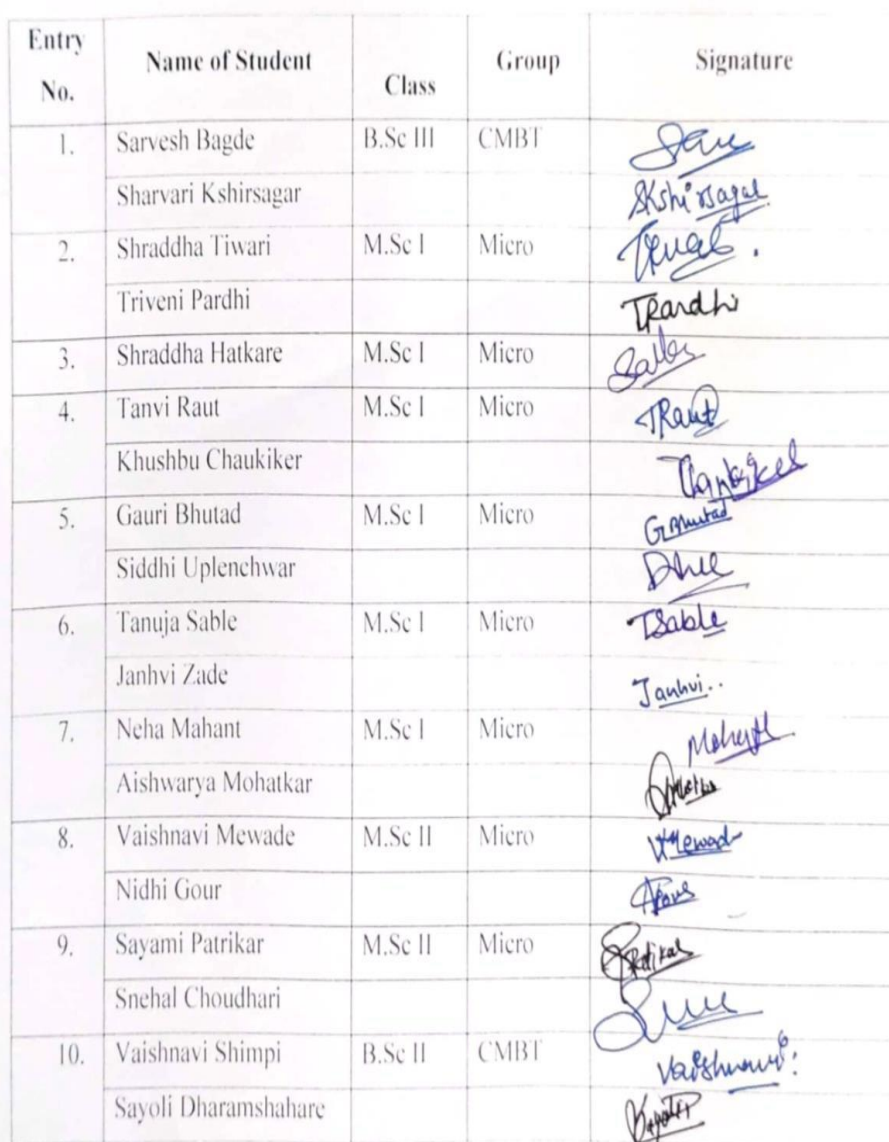 Entry No. Name of Student Class Group Signature
1. Sarvesh Bagde B.Sc III CMBT
Sharvari Kshirsagar SKshirsagar
2. Shraddha Tiwari M.Sc I Micro
Triveni Pardhi TPardhi
3. Shraddha Hatkare M.Sc I Micro
4. Tanvi Raut M.Sc I Micro TRaut
Khushbu Chaukiker
5. Gauri Bhutad M.Sc I Micro GBhutad
Siddhi Uplenchwar
6. Tanuja Sable M.Sc I Micro TSable
Janhvi Zade Janhvi..
7. Neha Mahant M.Sc I Micro
Aishwarya Mohatkar
8. Vaishnavi Mewade M.Sc II Micro
Nidhi Gour
9. Sayami Patrikar M.Sc II Micro
Snehal Choudhari
10. Vaishnavi Shimpi B.Sc II CMBT Vaishnavi
Sayoli Dharamshahare